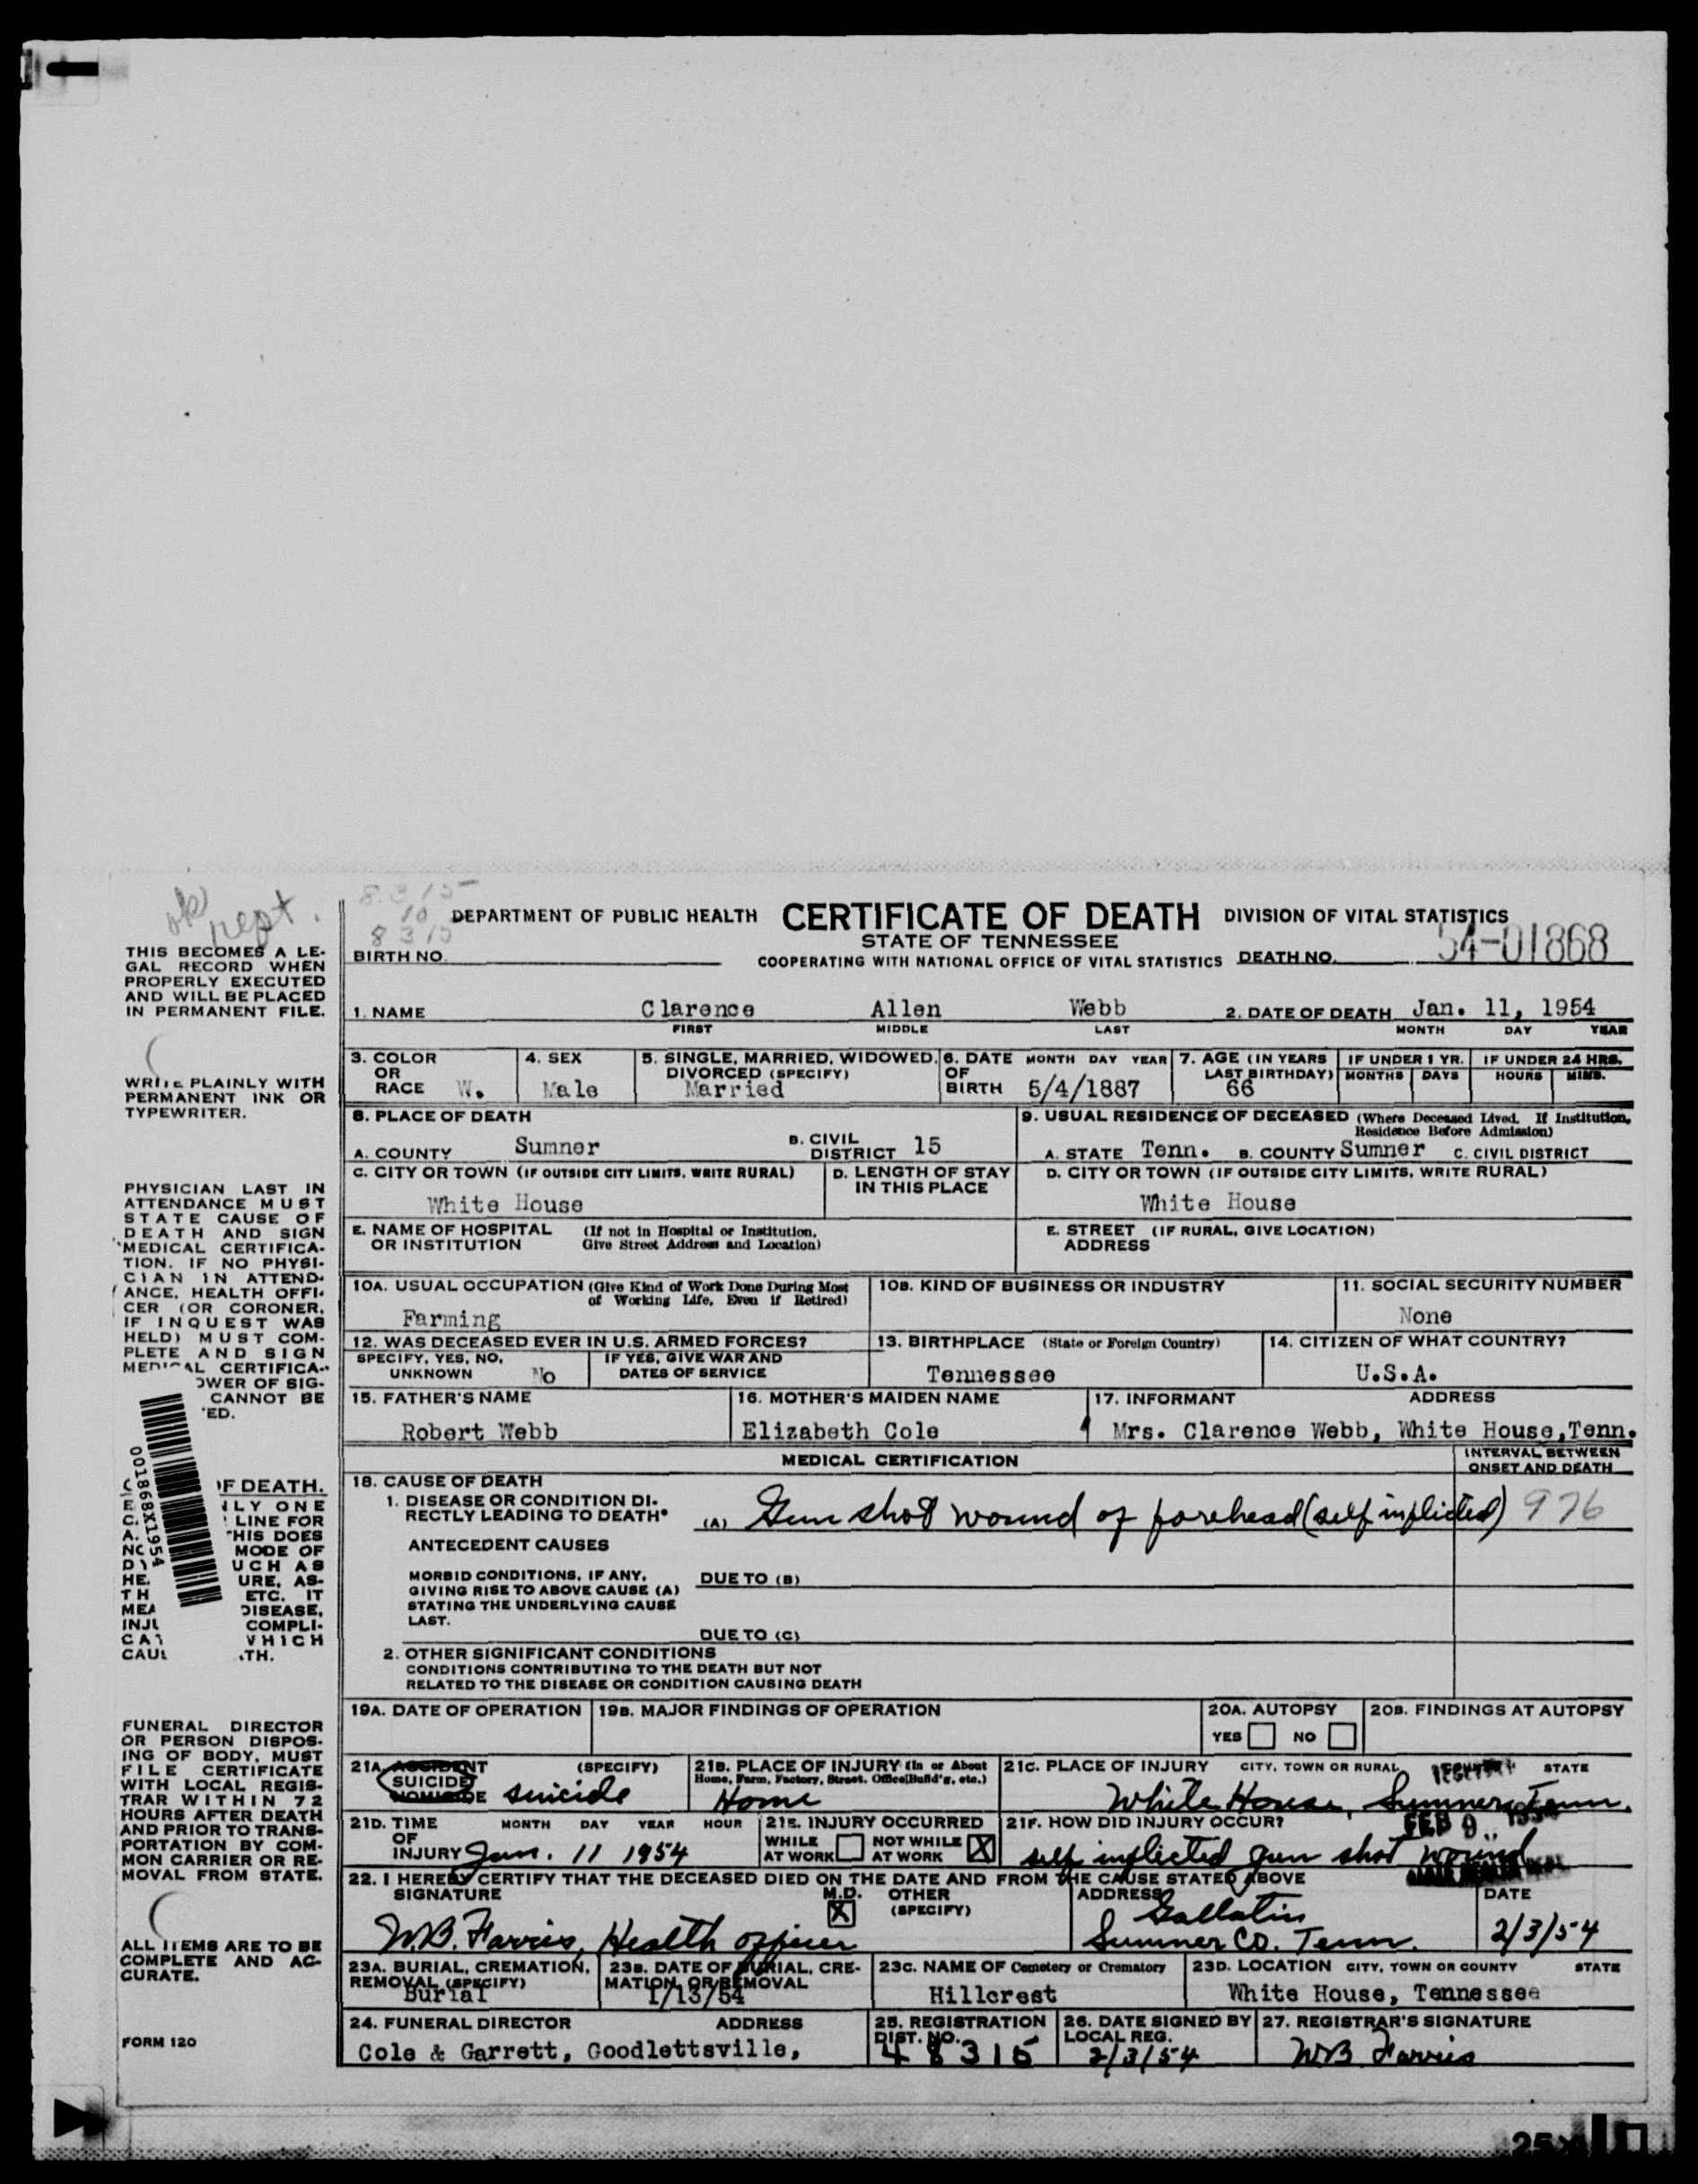 ok rept.
8315
10
8315
DEPARTMENT OF PUBLIC HEALTH CERTIFICATE OF DEATH DIVISION OF VITAL STATISTICS
STATE OF TENNESSEE
BIRTH NO. COOPERATING WITH NATIONAL OFFICE OF VITAL STATISTICS DEATH NO. 54-01868
THIS BECOMES A LE-
GAL RECORD WHEN
PROPERLY EXECUTED
AND WILL BE PLACED
IN PERMANENT FILE.
WRITE PLAINLY WITH
PERMANENT INK OR
TYPEWRITER.
PHYSICIAN LAST IN
ATTENDANCE MUST
STATE CAUSE OF
DEATH AND SIGN
MEDICAL CERTIFICA-
TION. IF NO PHYSI-
CIAN IN ATTEND-
ANCE, HEALTH OFFI-
CER (OR CORONER,
IF INQUEST WAS
HELD) MUST COM-
PLETE AND SIGN
MEDICAL CERTIFICA-
OWER OF SIG-
CANNOT BE
ED.
001868X1954
OF DEATH.
LY ONE
LINE FOR
THIS DOES
MODE OF
UCH AS
HE. URE, AS-
TH ETC. IT
MEA DISEASE,
INJU COMPLI-
CA WHICH
CAU TH.
FUNERAL DIRECTOR
OR PERSON DISPOS-
ING OF BODY, MUST
FILE CERTIFICATE
WITH LOCAL REGIS-
TRAR WITHIN 72
HOURS AFTER DEATH
AND PRIOR TO TRANS-
PORTATION BY COM-
MON CARRIER OR RE-
MOVAL FROM STATE.
ALL ITEMS ARE TO BE
COMPLETE AND AC-
CURATE.
FORM 120
1. NAME Clarence Allen Webb 2. DATE OF DEATH Jan. 11, 1954
FIRST MIDDLE LAST MONTH DAY YEAR
3. COLOR OR RACE W. 4. SEX Male 5. SINGLE, MARRIED, WIDOWED, DIVORCED (SPECIFY) Married 6. DATE OF BIRTH MONTH DAY YEAR 5/4/1887 7. AGE (IN YEARS LAST BIRTHDAY) 66 IF UNDER 1 YR. MONTHS DAYS IF UNDER 24 HRS. HOURS MINS.
8. PLACE OF DEATH 9. USUAL RESIDENCE OF DECEASED (Where Deceased Lived. If Institution, Residence Before Admission)
A. COUNTY Sumner B. CIVIL DISTRICT 15 A. STATE Tenn. B. COUNTY Sumner C. CIVIL DISTRICT
C. CITY OR TOWN (IF OUTSIDE CITY LIMITS, WRITE RURAL) White House D. LENGTH OF STAY IN THIS PLACE D. CITY OR TOWN (IF OUTSIDE CITY LIMITS, WRITE RURAL) White House
E. NAME OF HOSPITAL OR INSTITUTION (If not in Hospital or Institution, Give Street Address and Location) E. STREET ADDRESS (IF RURAL, GIVE LOCATION)
10A. USUAL OCCUPATION (Give Kind of Work Done During Most of Working Life, Even if Retired) Farming 10B. KIND OF BUSINESS OR INDUSTRY 11. SOCIAL SECURITY NUMBER None
12. WAS DECEASED EVER IN U.S. ARMED FORCES? SPECIFY, YES, NO, UNKNOWN No IF YES, GIVE WAR AND DATES OF SERVICE 13. BIRTHPLACE (State or Foreign Country) Tennessee 14. CITIZEN OF WHAT COUNTRY? U.S.A.
15. FATHER'S NAME Robert Webb 16. MOTHER'S MAIDEN NAME Elizabeth Cole 17. INFORMANT ADDRESS Mrs. Clarence Webb, White House, Tenn.
MEDICAL CERTIFICATION INTERVAL BETWEEN ONSET AND DEATH
18. CAUSE OF DEATH
1. DISEASE OR CONDITION DI-
RECTLY LEADING TO DEATH* (A) Gun shot wound of forehead (self inflicted) 976
ANTECEDENT CAUSES
MORBID CONDITIONS, IF ANY, DUE TO (B)
GIVING RISE TO ABOVE CAUSE (A)
STATING THE UNDERLYING CAUSE
LAST.
DUE TO (C)
2. OTHER SIGNIFICANT CONDITIONS
CONDITIONS CONTRIBUTING TO THE DEATH BUT NOT
RELATED TO THE DISEASE OR CONDITION CAUSING DEATH
19A. DATE OF OPERATION 19B. MAJOR FINDINGS OF OPERATION 20A. AUTOPSY YES NO 20B. FINDINGS AT AUTOPSY
21A. ACCIDENT SUICIDE HOMICIDE (SPECIFY) suicide 21B. PLACE OF INJURY (In or About Home, Farm, Factory, Street, Office Build'g, etc.) Home 21C. PLACE OF INJURY CITY, TOWN OR RURAL STATE White House, Sumner, Tenn.
21D. TIME OF INJURY MONTH DAY YEAR HOUR Jan. 11 1954 21E. INJURY OCCURRED WHILE AT WORK NOT WHILE AT WORK X 21F. HOW DID INJURY OCCUR? self inflicted gun shot wound
FEB 9 1954
22. I HEREBY CERTIFY THAT THE DECEASED DIED ON THE DATE AND FROM THE CAUSE STATED ABOVE
SIGNATURE M.D. X OTHER (SPECIFY) ADDRESS DATE
W.B. Farris, Health officer Gallatin Sumner Co. Tenn. 2/3/54
23A. BURIAL, CREMATION, REMOVAL (SPECIFY) Burial 23B. DATE OF BURIAL, CREMATION, OR REMOVAL 1/13/54 23C. NAME OF Cemetery or Crematory Hillcrest 23D. LOCATION CITY, TOWN OR COUNTY STATE White House, Tennessee
24. FUNERAL DIRECTOR ADDRESS Cole & Garrett, Goodlettsville, 25. REGISTRATION DIST. NO. 48315 26. DATE SIGNED BY LOCAL REG. 2/3/54 27. REGISTRAR'S SIGNATURE WB Farris
25X